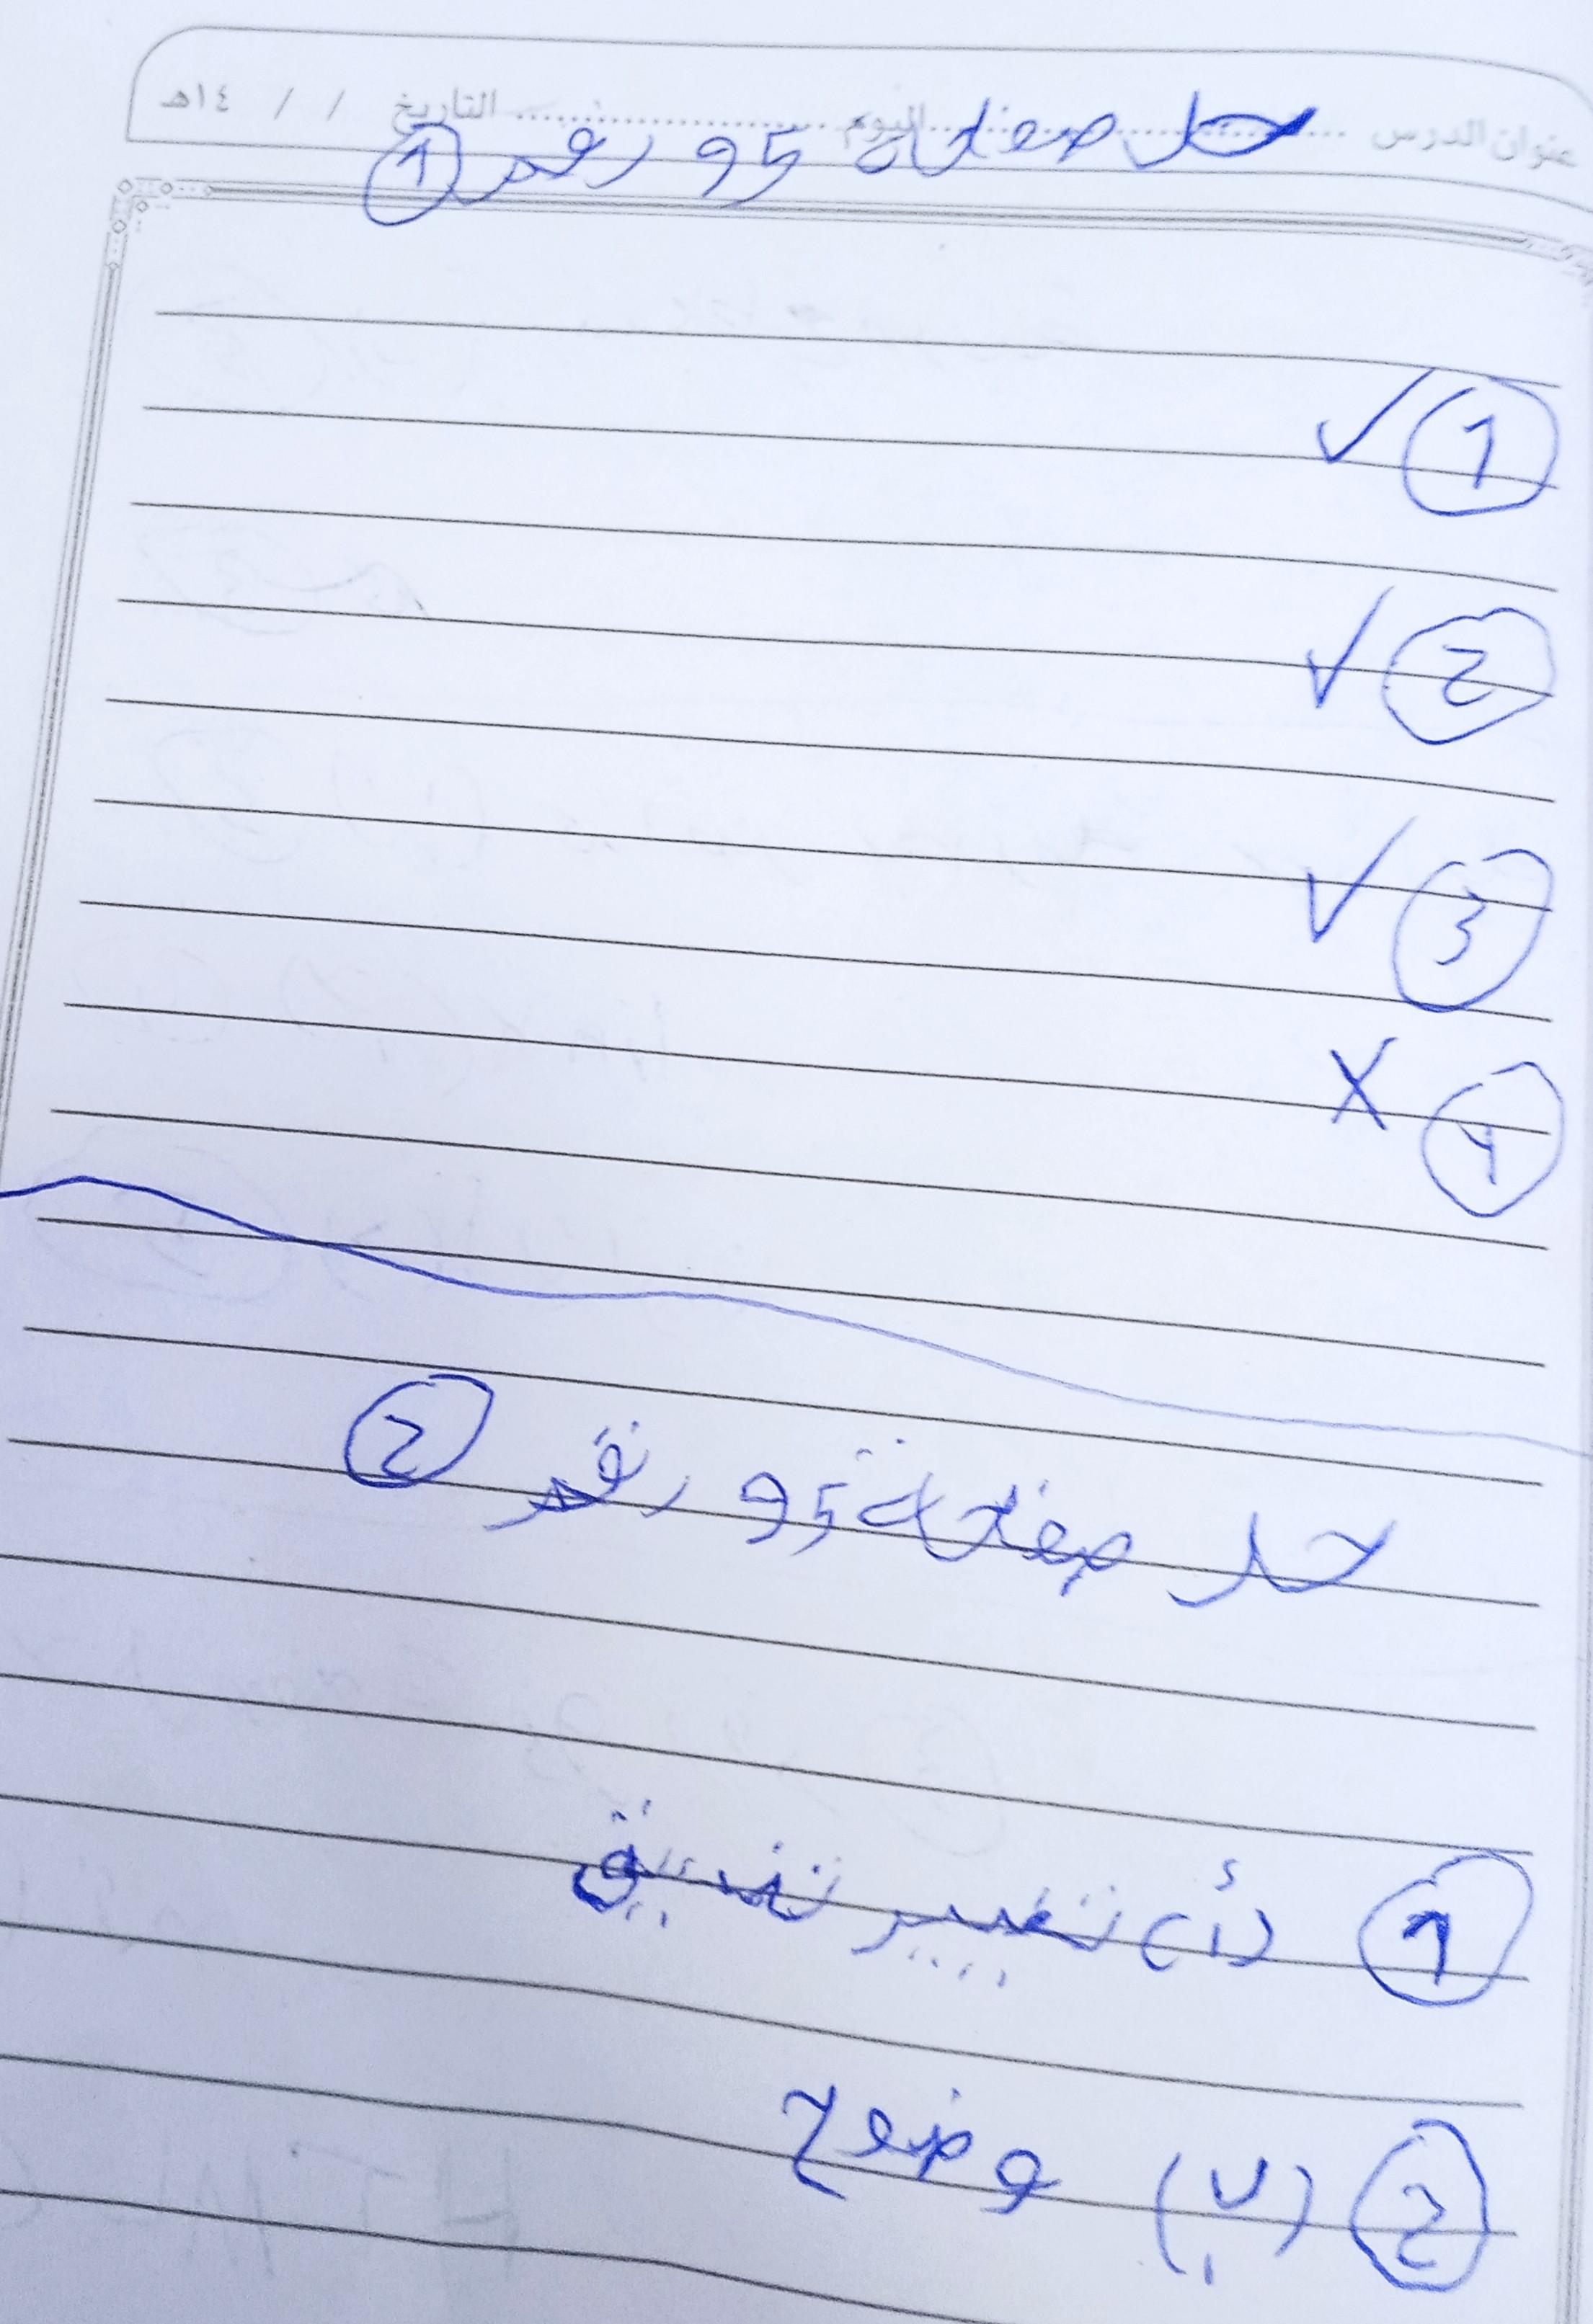 عنوان الدرس ........ اليوم ........ التاريخ / / ١٤هـ
حل صفحة 95 رقم 1
1 ✓
2 ✓
3 ✓
4 X
حل صفحة 95 رقم 2
1 (أ) تغيير تنسيق
2 (ب) وضوح